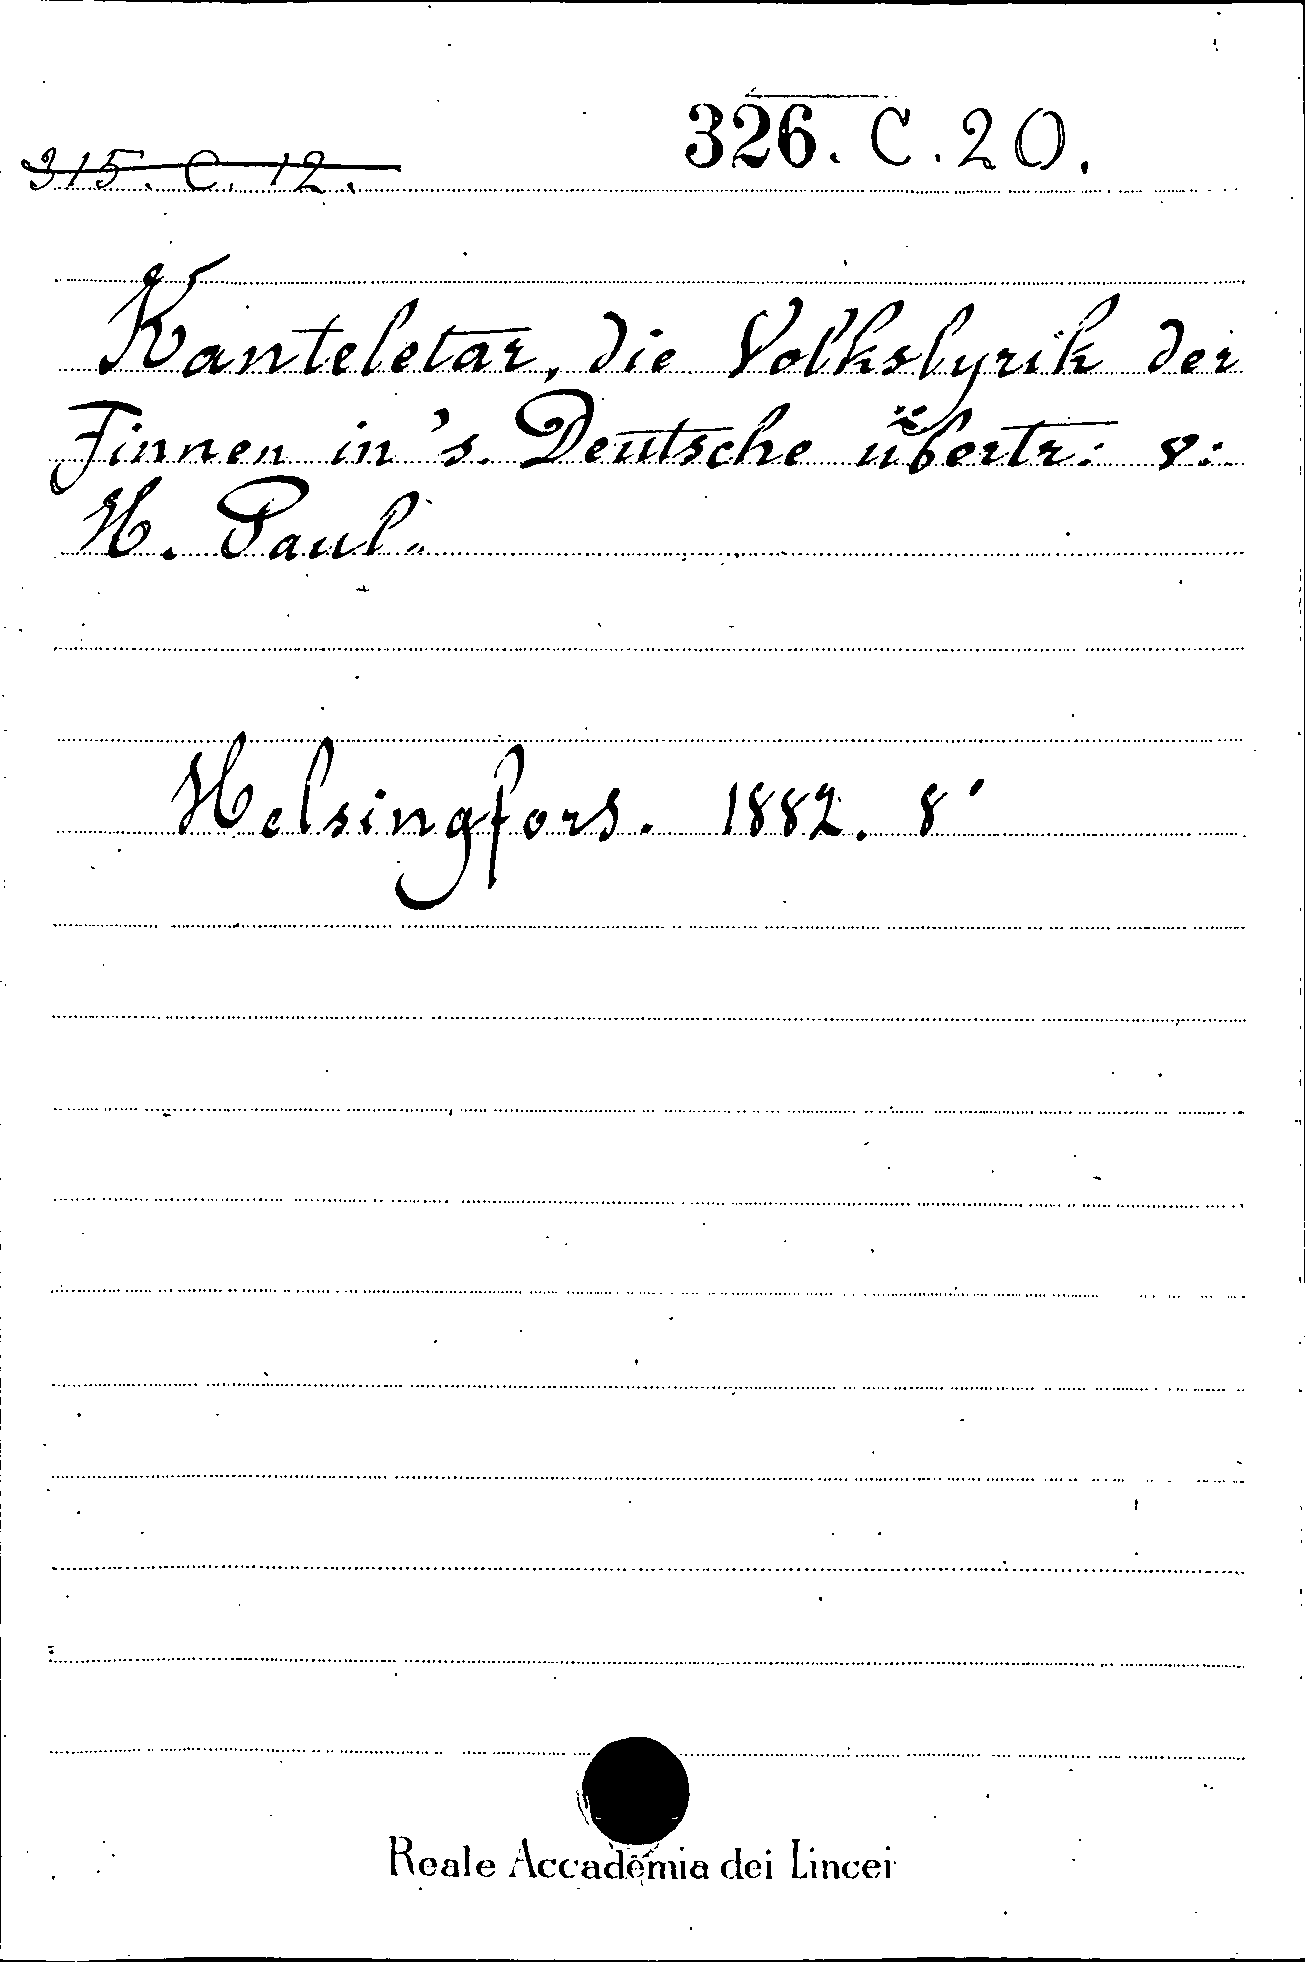 326. C. 20.
315. C. 12.
Kanteletar, die Volkslyrik der
Finnen in's. Deutsche übertr: v:
H. Paul.
Helsingfors. 1882. 8°
Reale Accademia dei Lincei